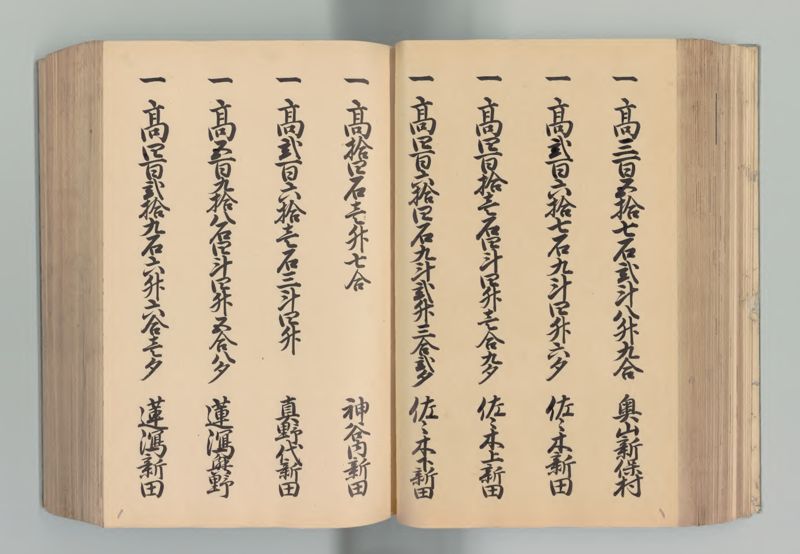 一 高三百五拾七石弐斗八升九合 奥山新保村
一 高弐百六拾七石九斗四升六夕 佐々木新田
一 高四百拾壱石四斗四升壱合九夕 佐々木上新田
一 高四百六拾四石九斗弐升三合弐夕 佐々木下新田
一 高拾四石壱升七合 神谷内新田
一 高弐百六拾壱石三斗四升 真野代新田
一 高五百九拾八石四斗四升五合八夕 蓮潟興野
一 高四百弐拾九石六升六合壱夕 蓮潟新田